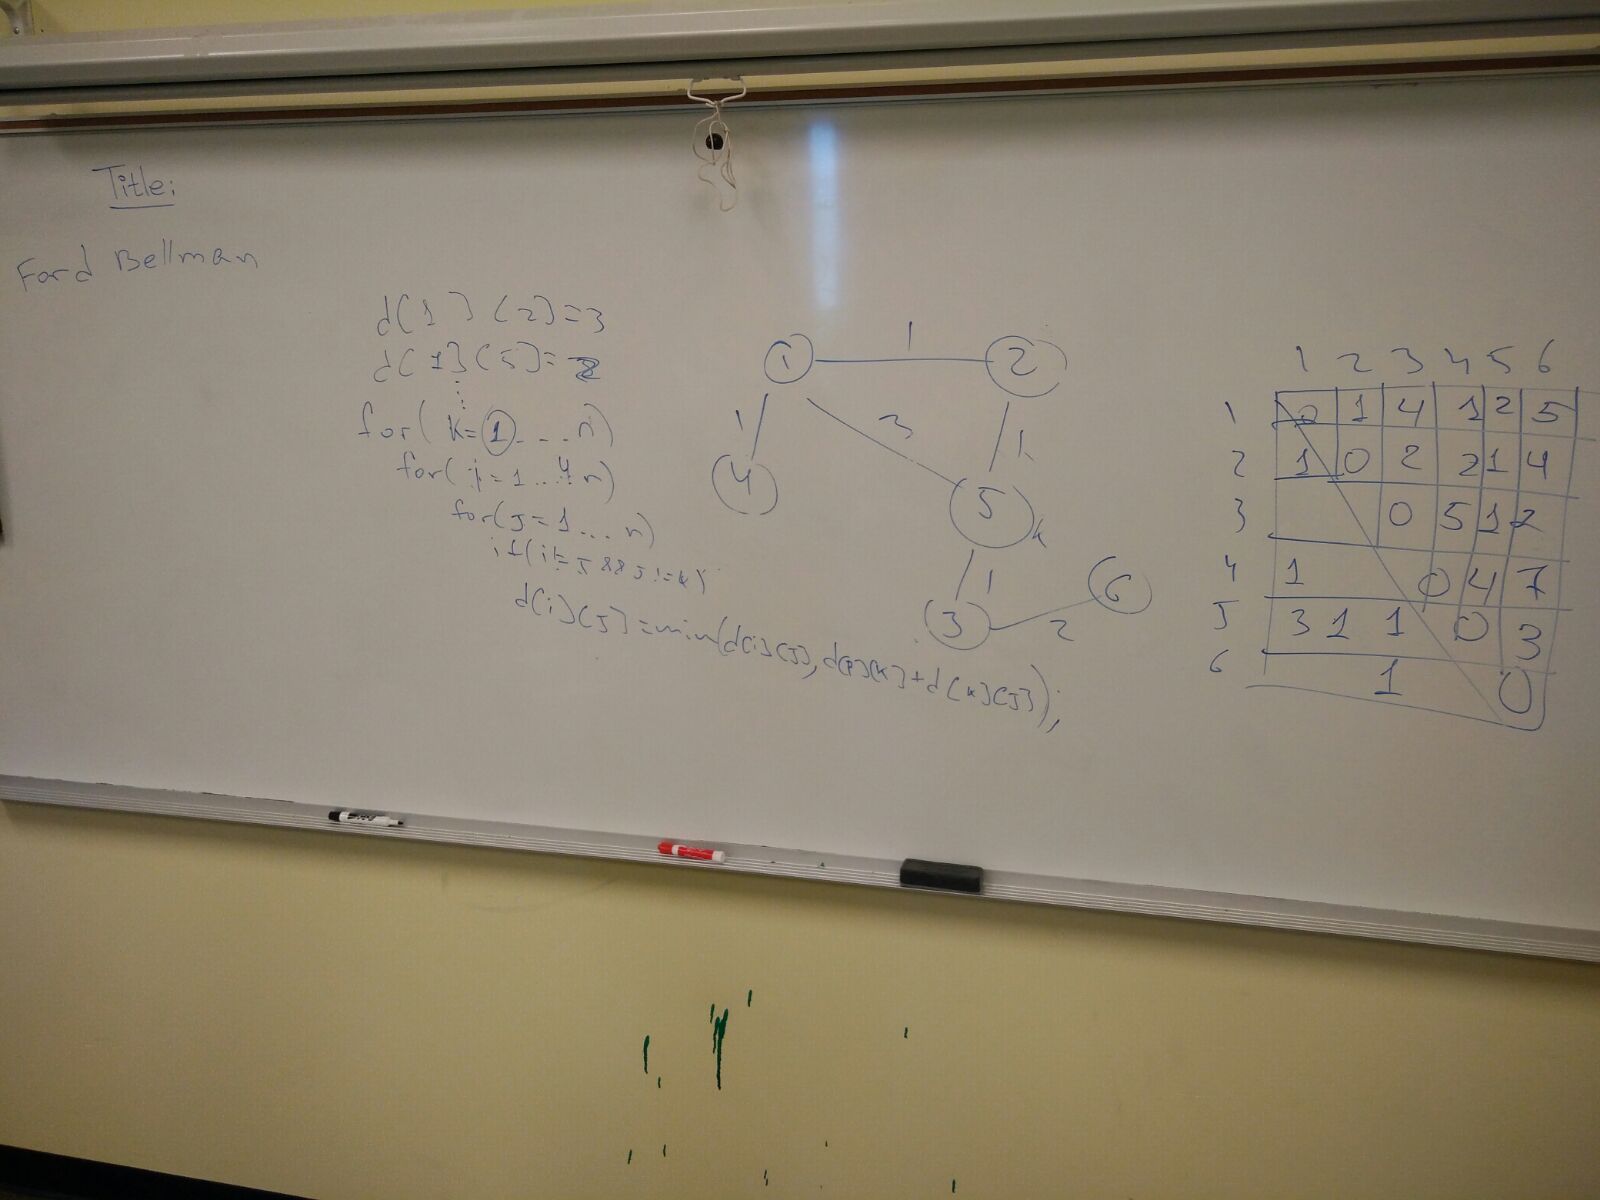 Title:
Ford Bellman
d[1][2]=3
d[1][5]=2
for( k=1....n)
for( i=1...n)
for(J=1...n)
if(i!=J && J!=k)
d[i][J]=min(d[i][J],d[i][k]+d[k][J]);
1 1 2
1 3 1
4 5 k
1
3 2 6
1 2 3 4 5 6
1 0 1 4 1 2 5
2 1 0 2 2 1 4
3 0 5 1 2
4 1 0 4 7
5 3 1 1 0 3
6 1 0